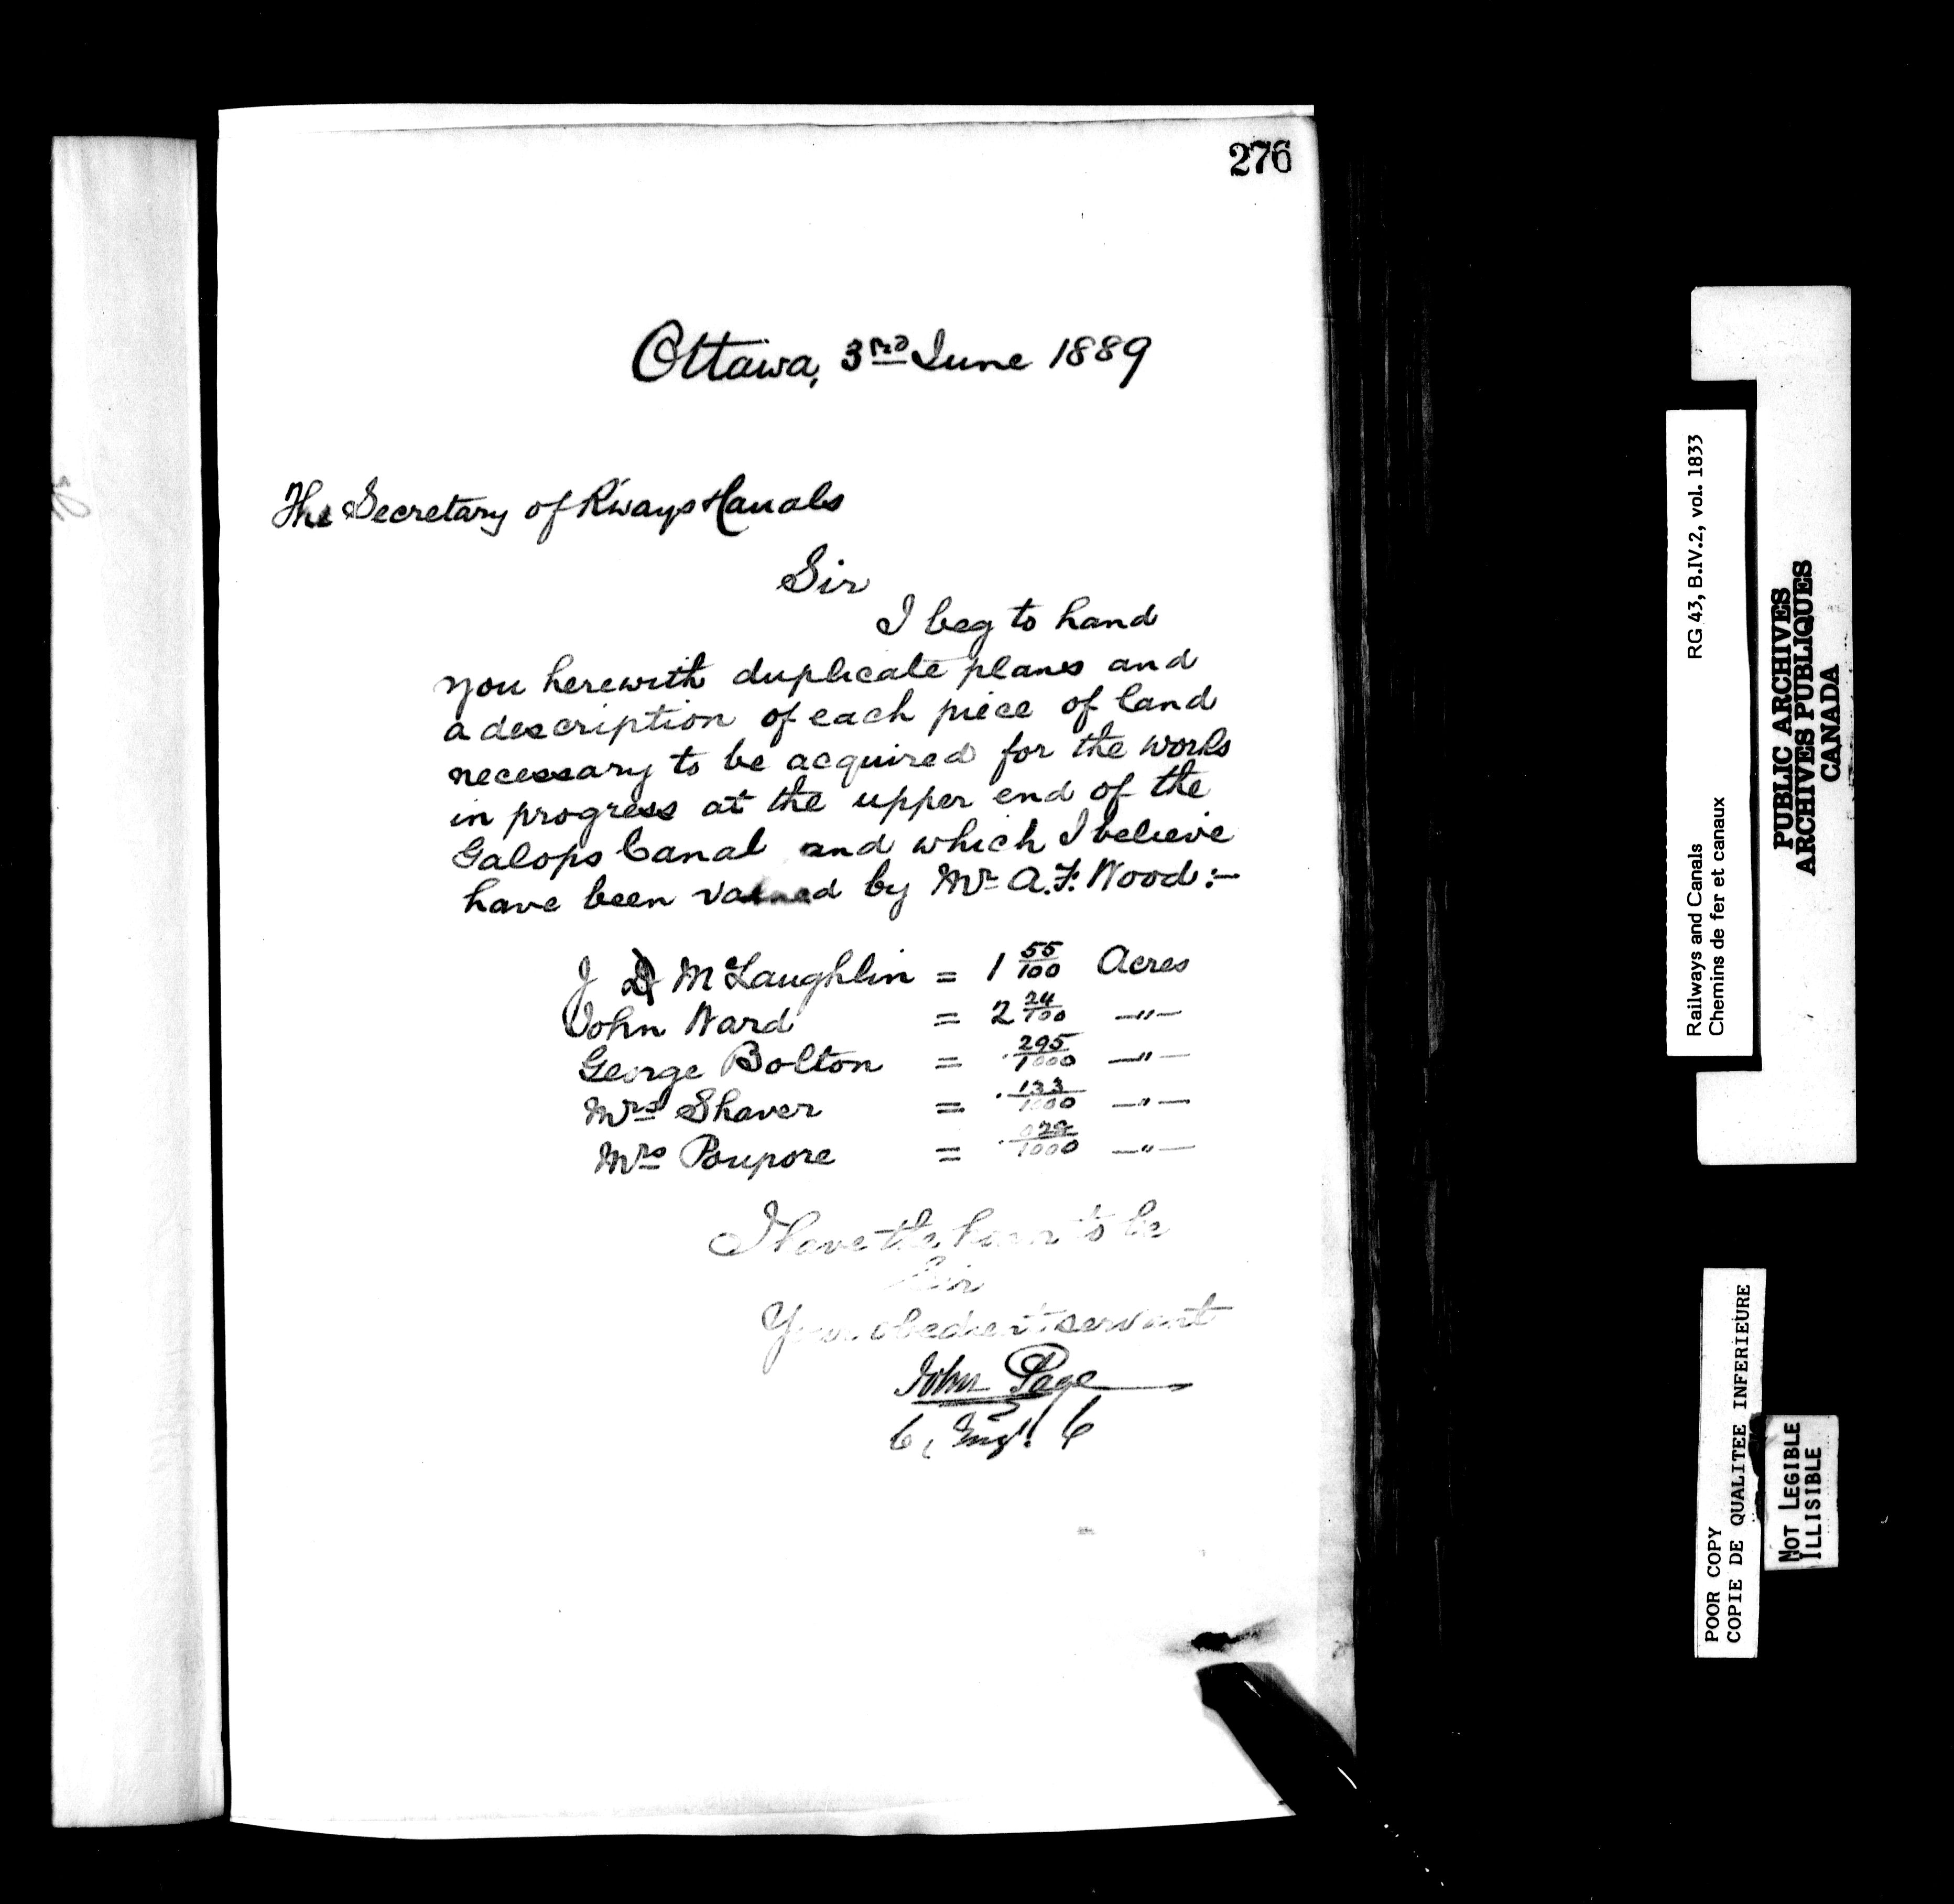 276
Ottawa, 3rd June 1889
The Secretary of R'ways & Canals
Sir
I beg to hand
you herewith duplicate plans and
a description of each piece of land
necessary to be acquired for the works
in progress at the upper end of the
Galops Canal and which I believe
have been valued by Mr A. F. Wood:-
J McLaughlin = 1 55/100 Acres
John Ward = 2 24/100 —"—
George Bolton = .295/1000 —"—
Mrs Shaver = .133/1000 —"—
Mrs Poupore = .028/1000 —"—
I have the honor to be
Sir
Your obedient servant
John Page
C, Engr. C
RG 43, B.IV.2, vol. 1833
Railways and Canals
Chemins de fer et canaux
PUBLIC ARCHIVES
ARCHIVES PUBLIQUES
CANADA
POOR COPY
COPIE DE QUALITEE INFERIEURE
NOT LEGIBLE
ILLISIBLE